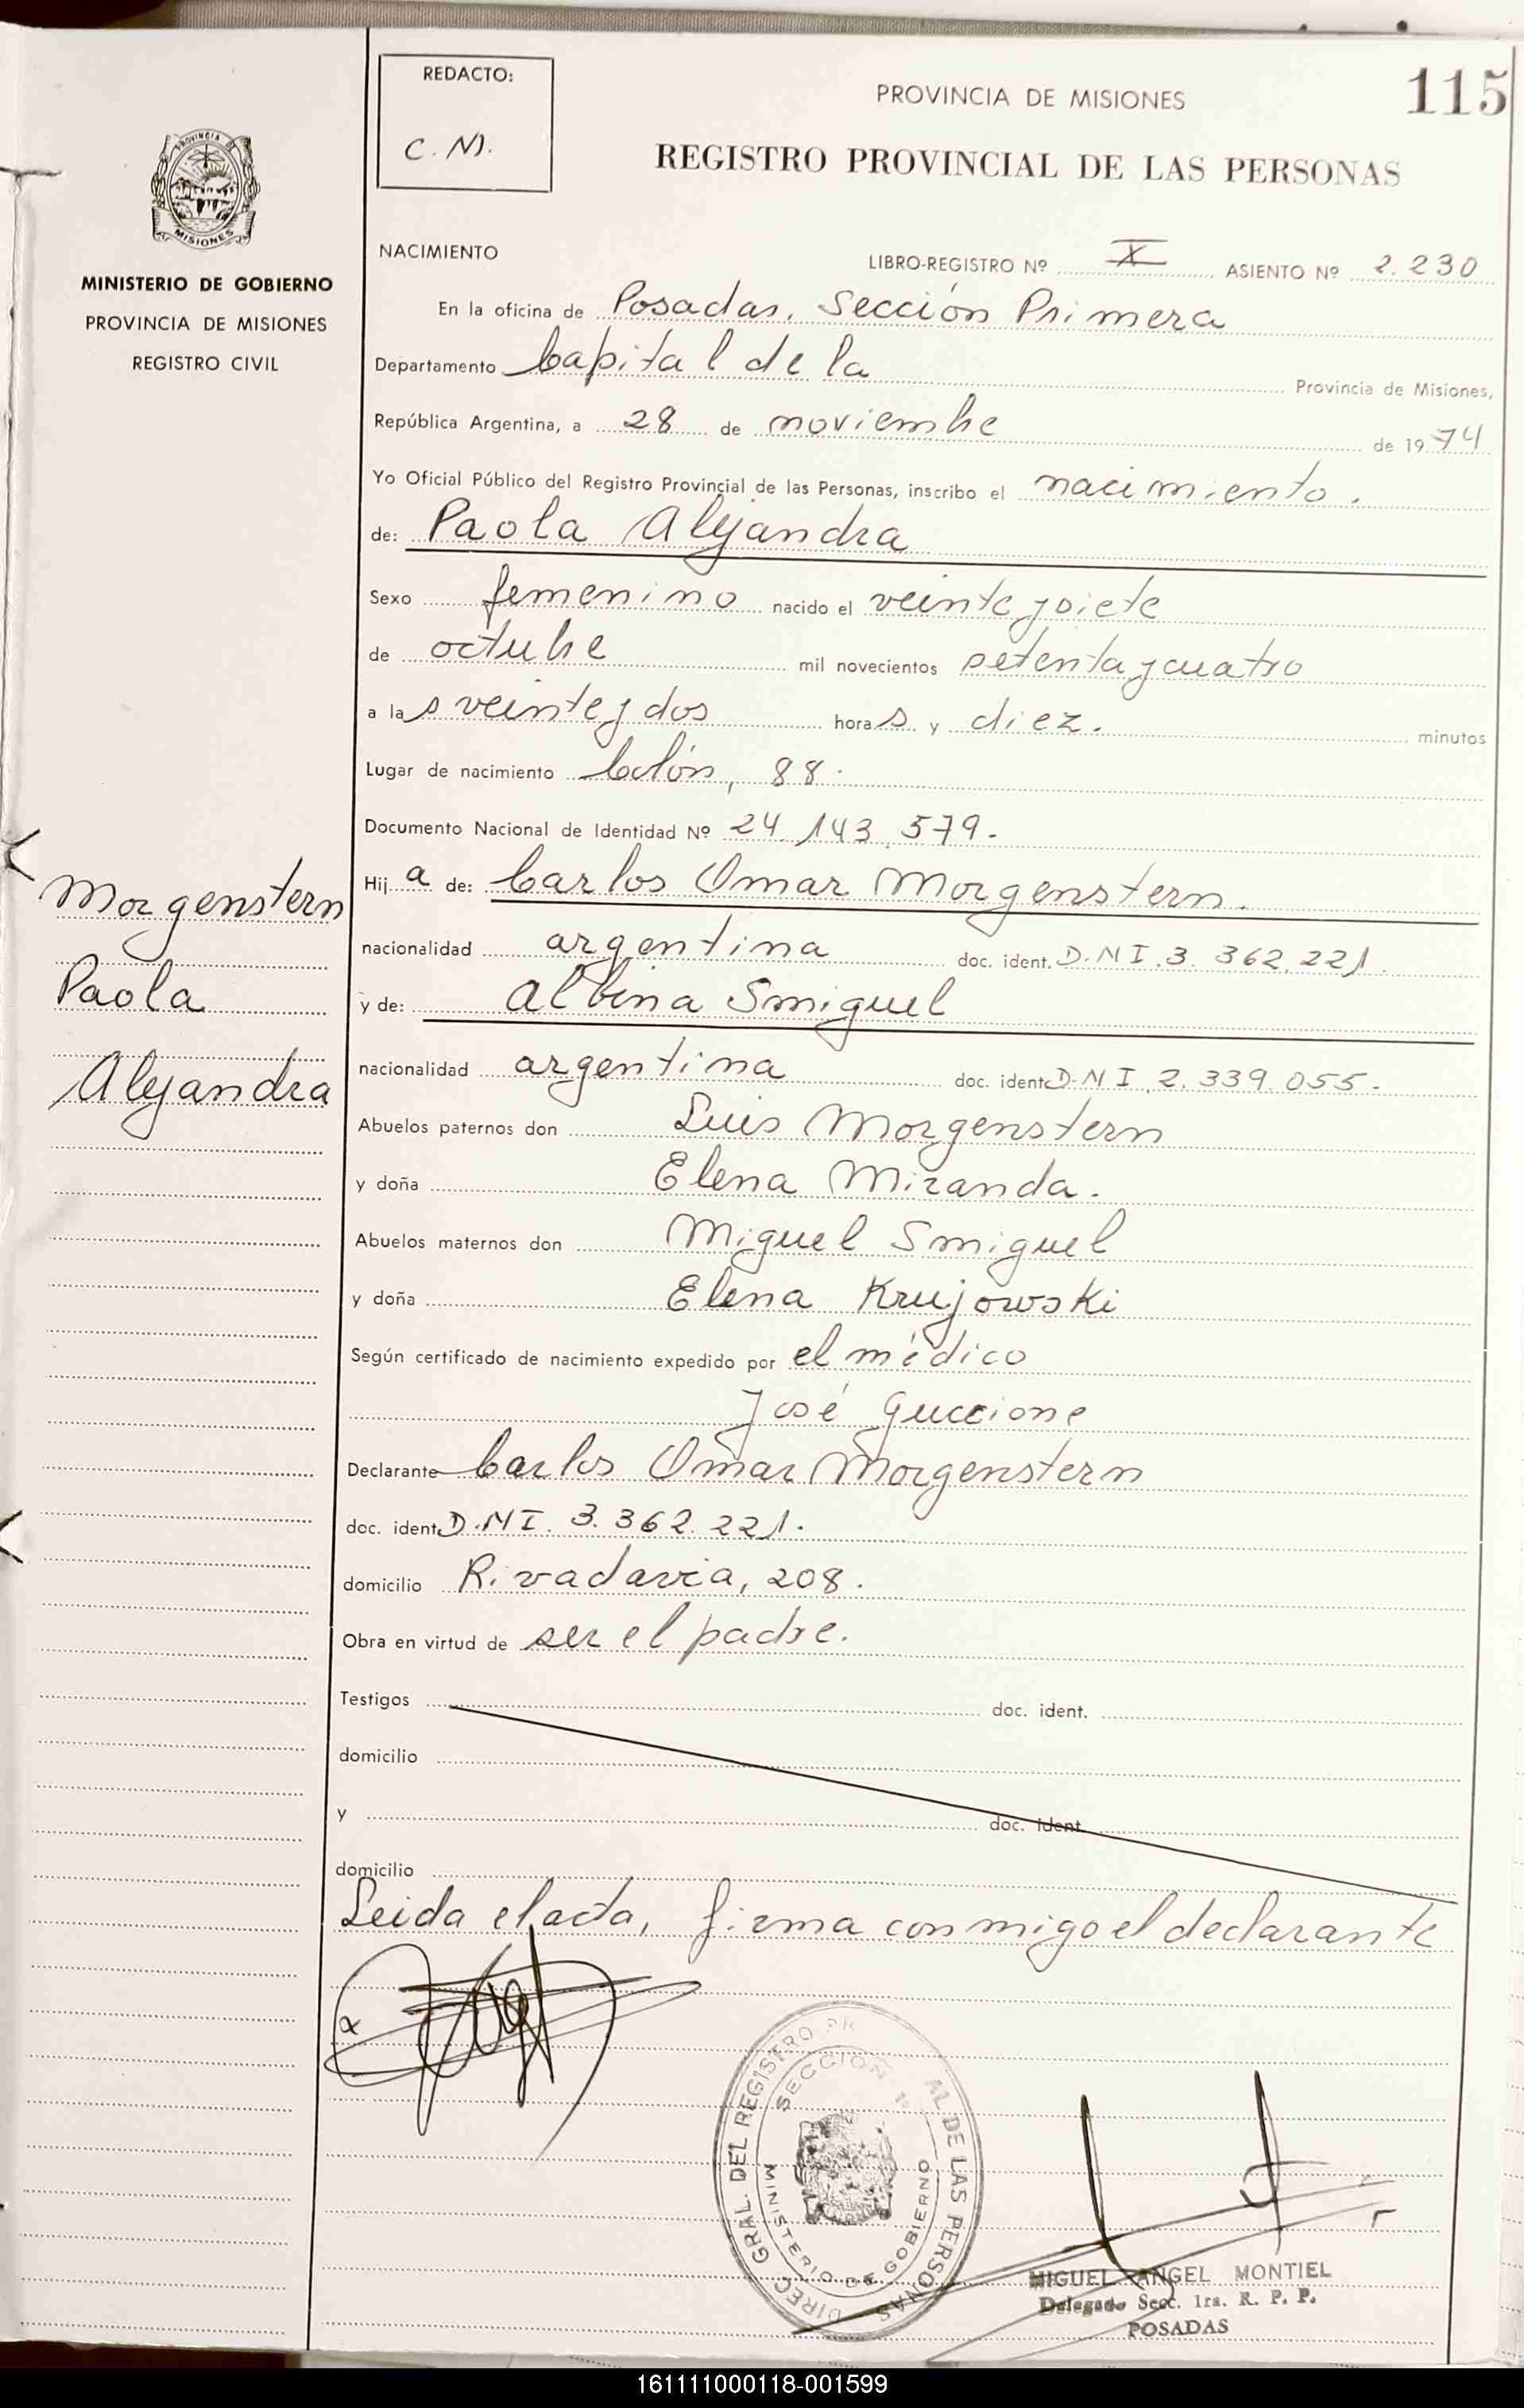 115
REDACTO:
C. N.
PROVINCIA DE MISIONES
REGISTRO PROVINCIAL DE LAS PERSONAS
PROVINCIA DE
MISIONES
MINISTERIO DE GOBIERNO
PROVINCIA DE MISIONES
REGISTRO CIVIL
NACIMIENTO
LIBRO-REGISTRO Nº X ASIENTO Nº 2.230
En la oficina de Posadas, Sección Primera
Departamento Capital de la Provincia de Misiones,
República Argentina, a 28 de noviembre de 1974
Yo Oficial Público del Registro Provincial de las Personas, inscribo el nacimiento.
de: Paola Alejandra
Sexo femenino nacido el veinte y siete
de octubre mil novecientos setenta y cuatro
a las veinte y dos horas y diez. minutos
Lugar de nacimiento Colón, 88.
Documento Nacional de Identidad Nº 24.143.579.
Hija de: Carlos Omar Morgenstern.
nacionalidad argentina doc. ident. D.N.I. 3.362.221.
y de: Albina Smiguel
nacionalidad argentina doc. ident. D.N.I. 2.339.055.
Abuelos paternos don Luis Morgenstern
y doña Elena Miranda.
Abuelos maternos don Miguel Smiguel
y doña Elena Krujowski
Según certificado de nacimiento expedido por el médico
José Guccione
Declarante Carlos Omar Morgenstern
doc. ident. D.N.I. 3.362.221.
domicilio Rivadavia, 208.
Obra en virtud de ser el padre.
Testigos doc. ident.
domicilio
y doc. ident.
domicilio
Leida el acta, firma conmigo el declarante
Morgenstern
Paola
Alejandra
DIREC. GRAL. DEL REGISTRO PR AL DE LAS PERSONAS
SECCION 1ª
MINISTERIO DE GOBIERNO
MIGUEL ANGEL MONTIEL
Delegado Secc. 1ra. R. P. P.
POSADAS
161111000118-001599